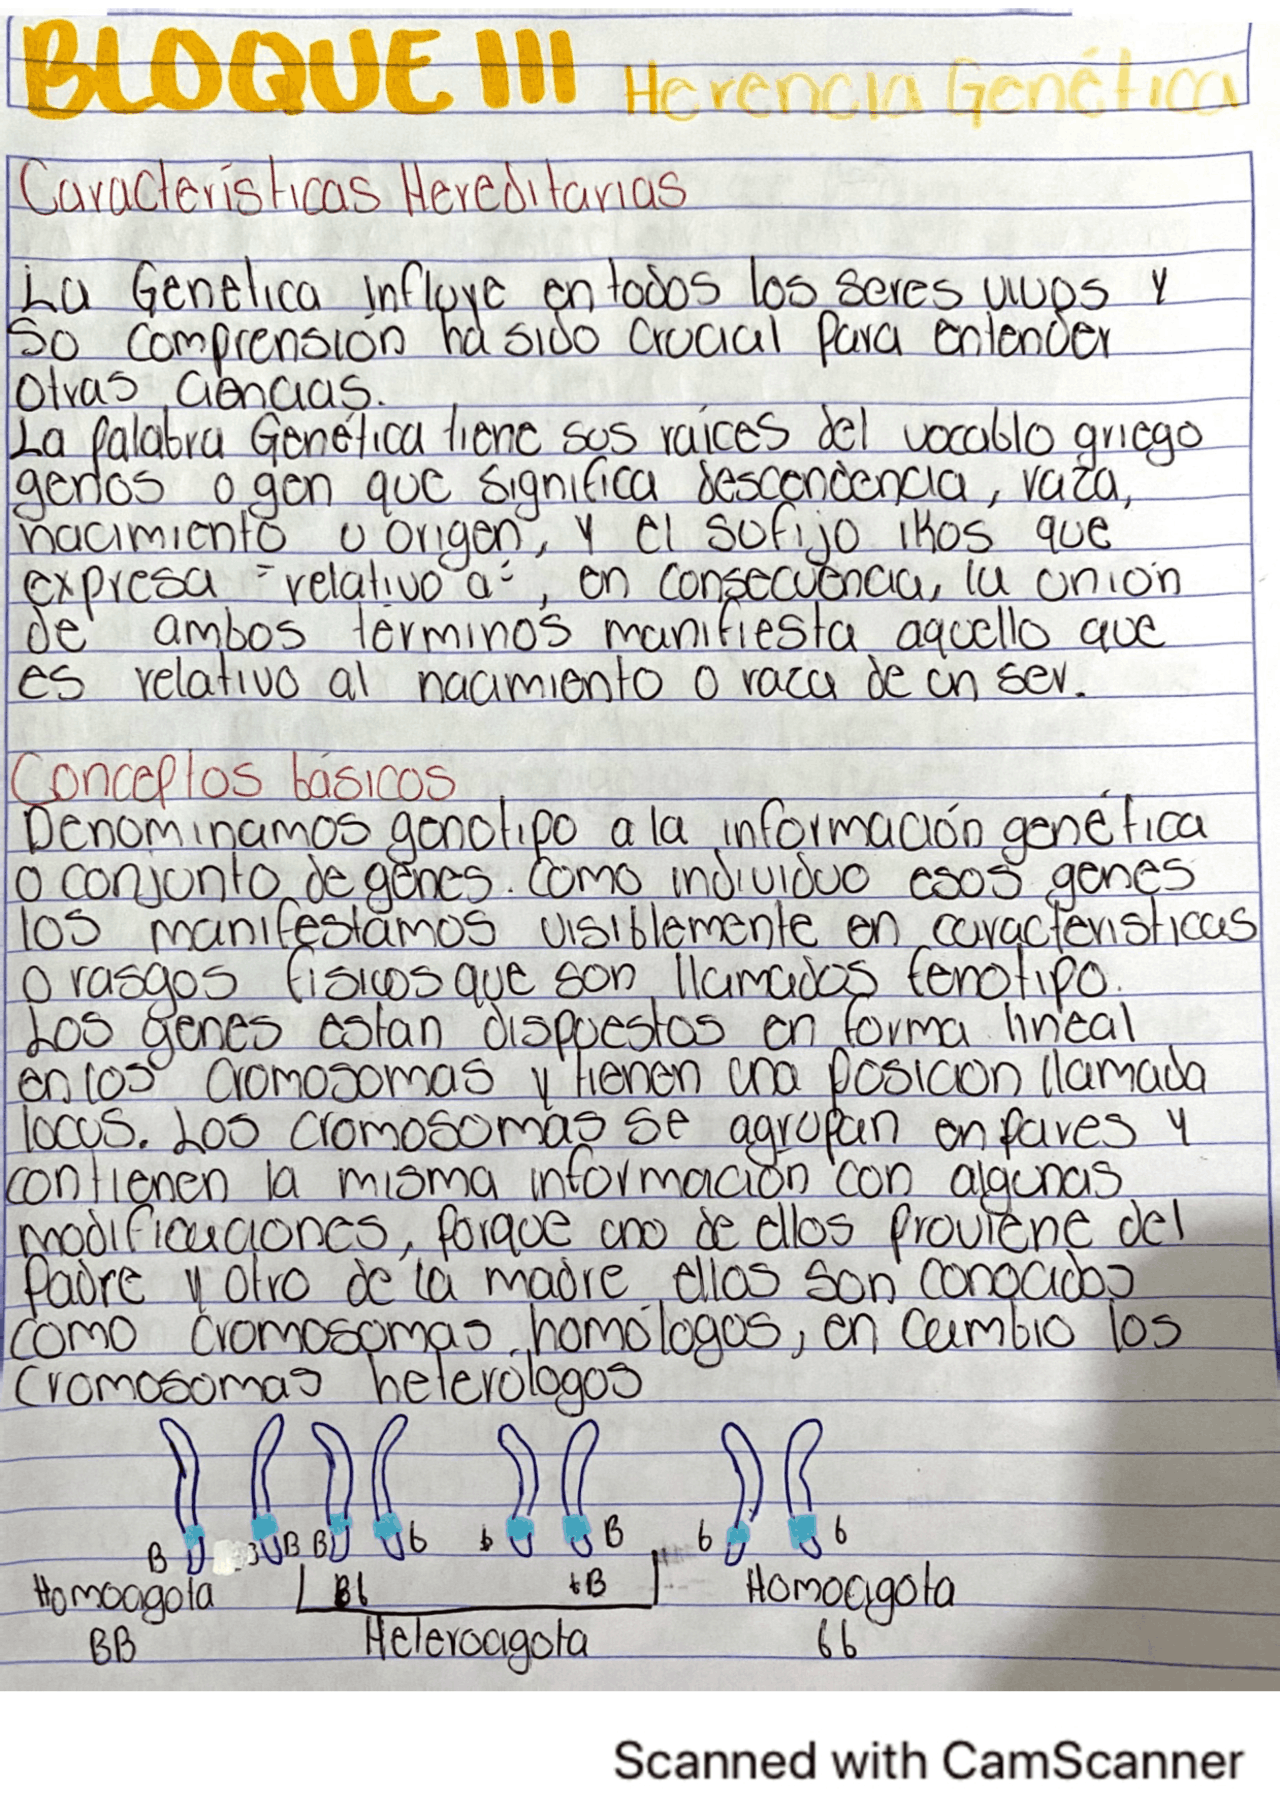 BLOQUE III Herencia Genética
Características Hereditarias
La Genetica influye en todos los seres vivos y
su comprensión ha sido crucial para entender
otras ciencias.
La palabra Genética tiene sus raíces del vocablo griego
genos o gen que significa descendencia, raza,
nacimiento u origen, y el sufijo ikos que
expresa "relativo a", en consecuencia, la unión
de ambos términos manifiesta aquello que
es relativo al nacimiento o raza de un ser.
Conceptos básicos
Denominamos genotipo a la información genética
o conjunto de genes. Como individuo esos genes
los manifestamos visiblemente en características
o rasgos físicos que son llamados fenotipo.
Los genes estan dispuestos en forma lineal
en los cromosomas y tienen una posicion llamada
locus. Los cromosomas se agrupan en pares y
contienen la misma información con algunas
modificaciones, porque uno de ellos proviene del
Padre y otro de la madre ellos son conocidos
como cromosomas homólogos, en cambio los
cromosomas heterólogos
B B B b b B b b
Homocigota Bb bB Homocigota
BB Heterocigota bb
Scanned with CamScanner